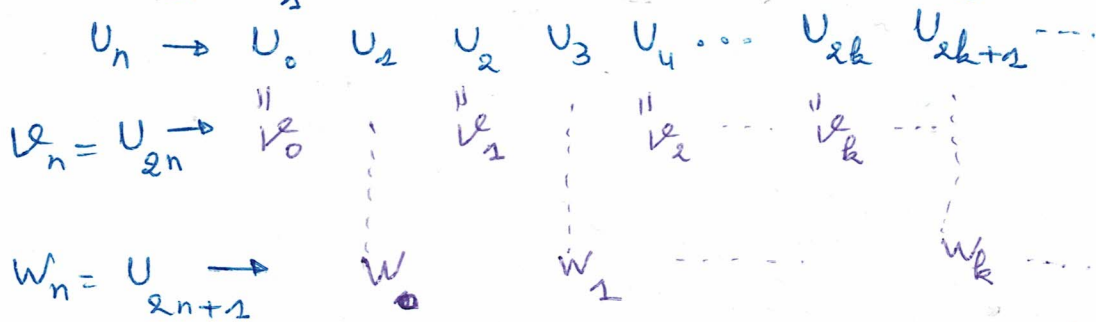 U_n → U_0 U_1 U_2 U_3 U_4 ... U_{2k} U_{2k+1} ----
" " " "
v_n = U_{2n} → v_0 v_1 v_2 ---- v_k ---
w_n = U_{2n+1} → w_0 w_1 ------ w_k ----